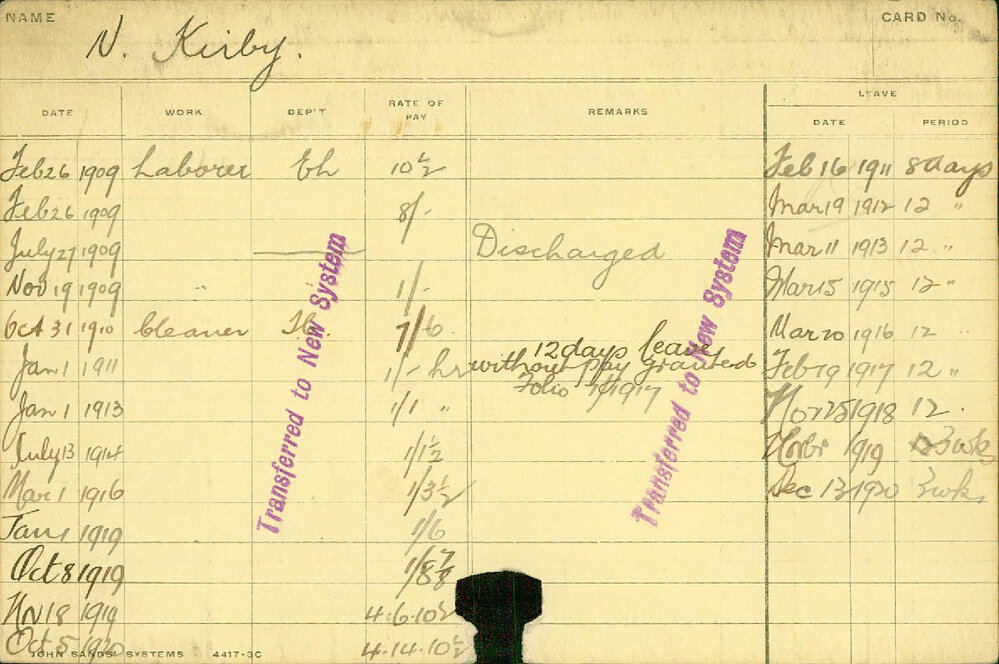 NAME
CARD No.
N. Kirby.
DATE WORK DEP'T RATE OF PAY REMARKS LEAVE
DATE PERIOD
Feb 26 1909 Laborer Eh 10½ Feb 16 1911 8 days
Feb 26 1909 8/- Mar 19 1912 12 "
July 27 1909 Discharged Mar 11 1913 12 "
Nov 19 1909 " 1/- Mar 15 1915 12 "
Oct 31 1910 Cleaner 7/6 Mar 20 1916 12 "
Jan 1 1911 1/- hr 12 days leave without pay granted Feb 19 1917 12 "
Jan 1 1913 1/1 " Folio 1917 Nov 25 1918 12 "
July 13 1914 1/1½ 1919 3 wks
Mar 1 1916 1/3½ Dec 13 1920 3 wks
Jan 1 1919 1/6
Oct 8 1919 1/8⅞
Nv 18 1919 4-6-10½
Oct 5 1920 4-14-10½
Transferred to New System
Transferred to New System
JOHN SANDS' SYSTEMS 4417-3C